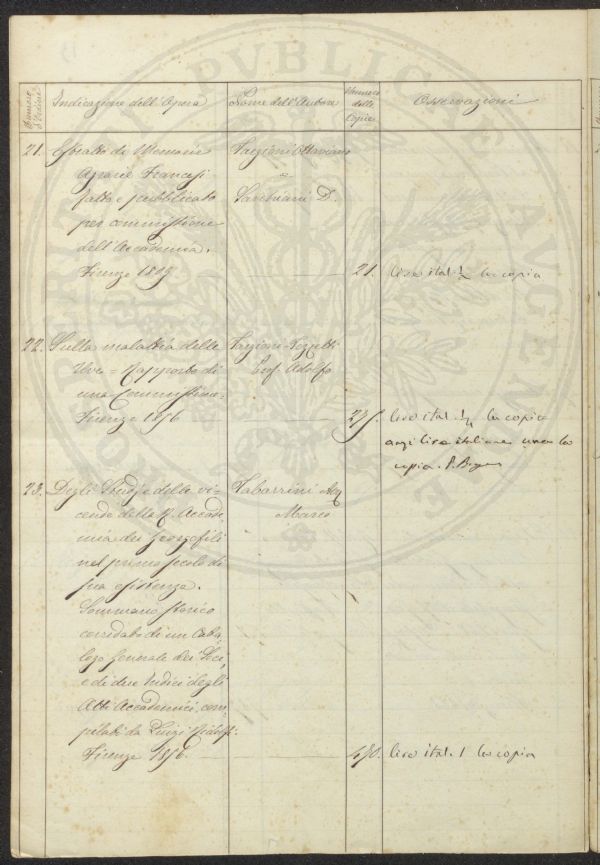 Numero d'Ordine
Indicazione dell'Opera
Nome dell'Autore
Numero delle Copie
Osservazioni
21. Estratto di Memorie
Agrarie Francesi
fatto e pubblicato
per commissione
dell'Accademia.
Firenze 1809
Targioni Ottaviano
e
Tartini D.
21. lire ital. la copia
22. Sulla malattia delle
Uve = Rapporto di
una Commissione.
Firenze 1856
Targioni-Tozzetti
Prof. Adolfo
lire ital. la copia
anzi lira italiana una la
copia.
23. Degli Studj e delle vi-
cende della R. Accade-
mia dei Georgofili
nel primo secolo di
sua esistenza.
Sommario storico
corredato di un Cata-
logo Generale dei Soci,
e di due Indici degli
Atti Accademici, com-
pilati da Luigi Ridolfi.
Firenze 1856.
Tabarrini
Marco
450. lire ital. 1 la copia
PVBLICAE
AVGEN
PROSPERITATI